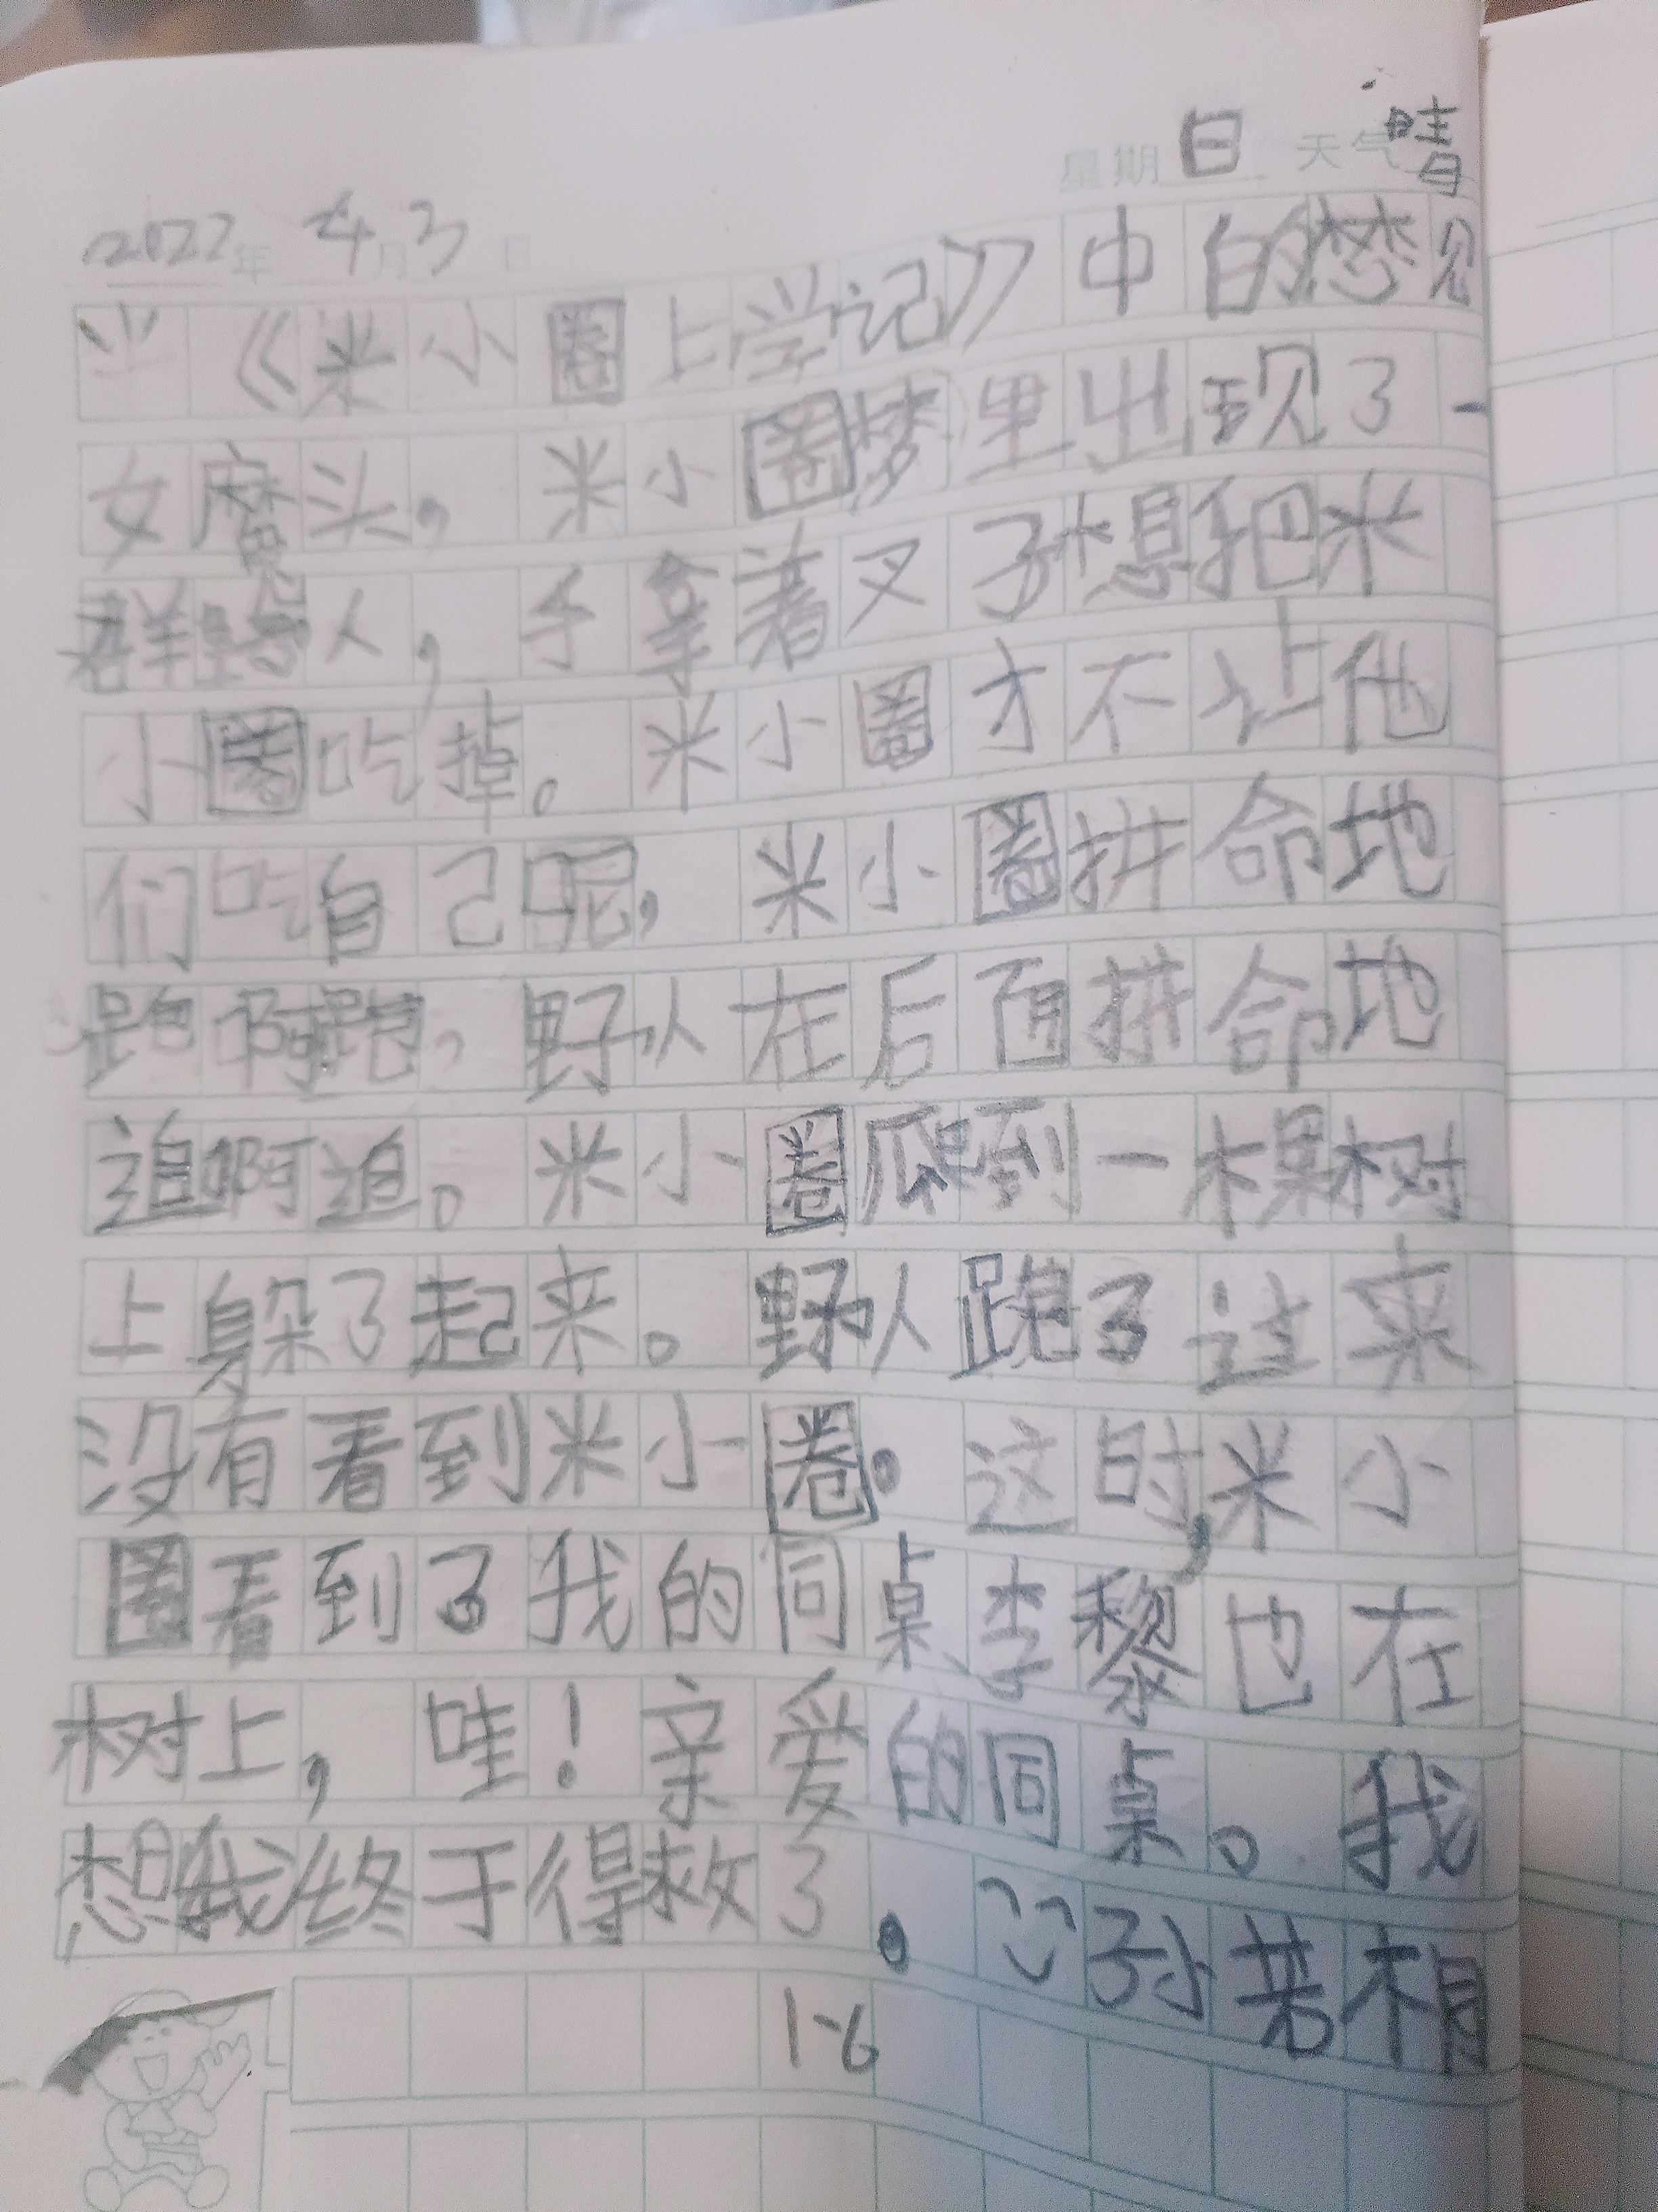 星期日 天气晴
2022年4月3日
《米小圈上学记》中的梦见
女魔头，米小圈梦里出现了一
群野人，手拿着叉子想把米
小圈吃掉。米小圈才不让他
们吃自己呢，米小圈拼命地
跑啊跑，野人在后面拼命地
追啊追。米小圈爬到一棵树
上躲了起来。野人跑了过来
没有看到米小圈。这时，米小
圈看到了我的同桌李黎也在
树上，哇！亲爱的同桌。我
想我终于得救了。
孙若相
1-6